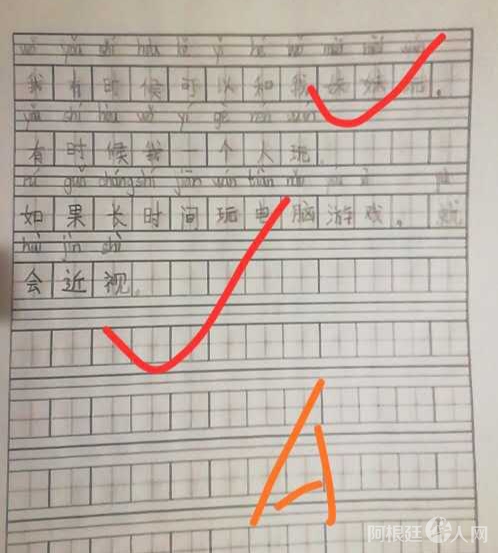 wǒ yǒu shí hou kě yǐ hé wǒ mèi mei wán
我有时候可以和我妹妹玩。
yǒu shí hou wǒ yí gè rén wán
有时候我一个人玩。
rú guǒ cháng shí jiān wán diàn nǎo yóu xì jiù
如果长时间玩电脑游戏。就
huì jìn shì
会近视。
A
阿根廷华人网